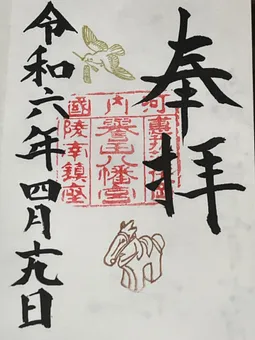 奉拝
河内國
譽田八幡宮
陵奉鎮座
令和六年四月十九日